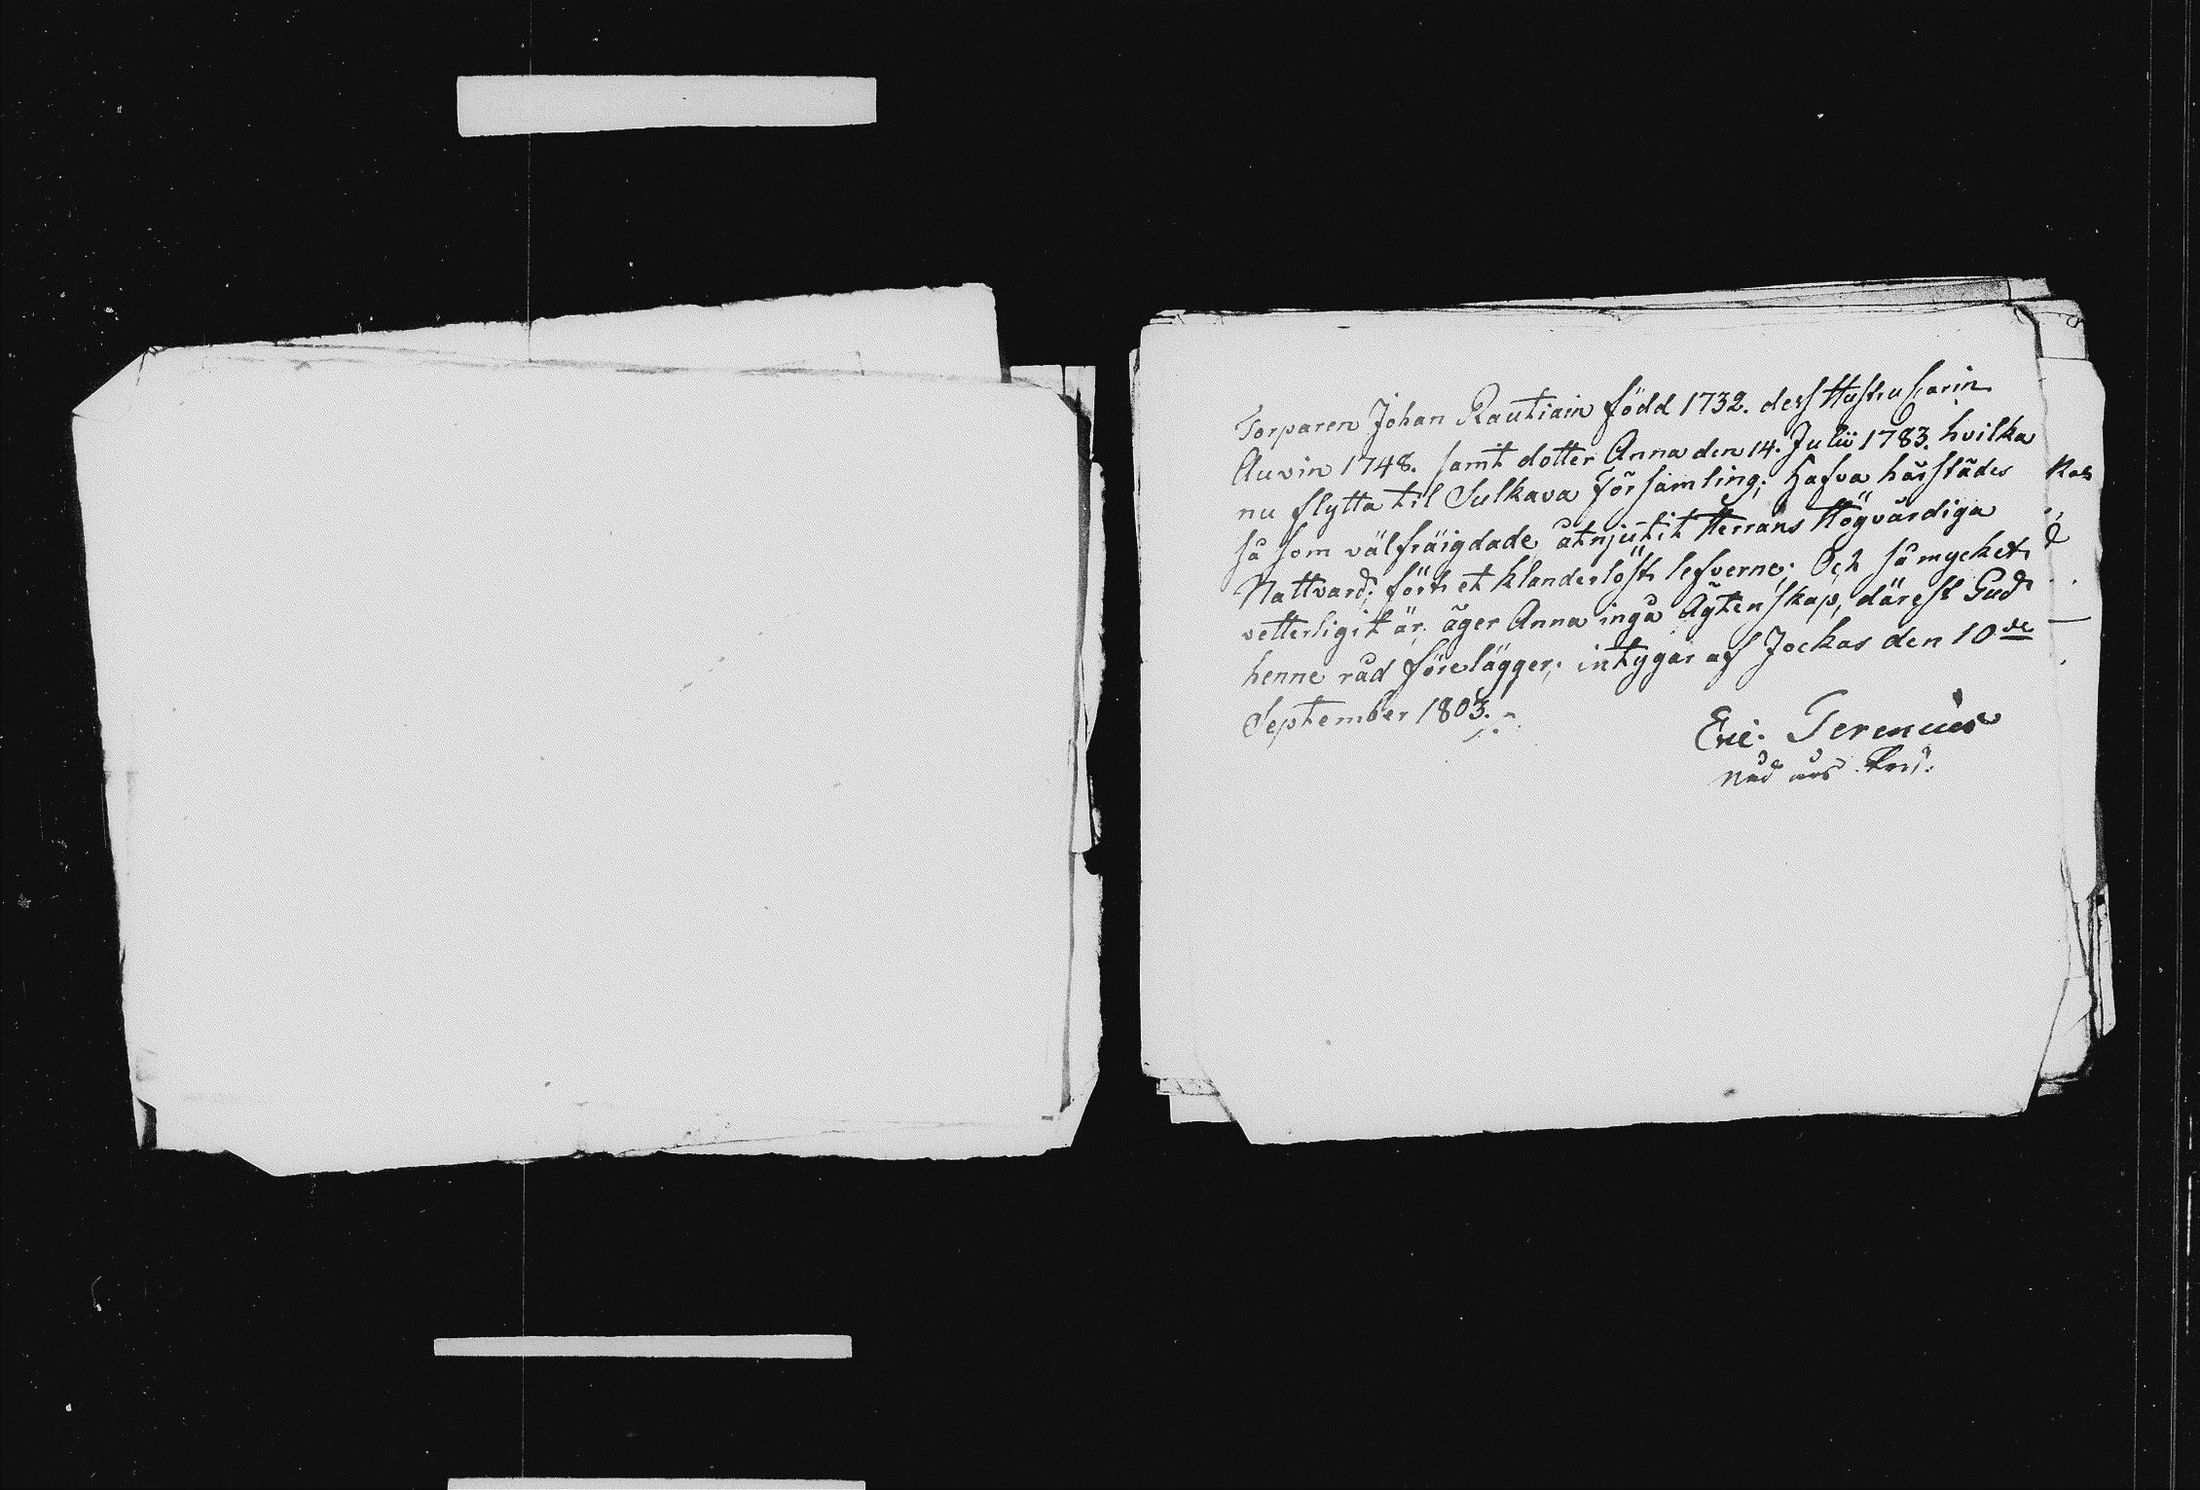 Torparen Johan Rautiain född 1732. dess Hustru Carin
Auvin 1748. samt dotter Anna den 14. Julii 1783. hvilka
nu flytta til Sulkava Församling; hafva härstädes
så som välfräigdade åtnjutit Herrans Högvärdiga
Nattvard; fört et klanderlöst lefverne; Och så mycket
vetterligit är, äger Anna inga Ägtenskap, därest Gud
henne råd förelägger; intygar af Jockas den 10de
September 1803.
Eric. Terencius